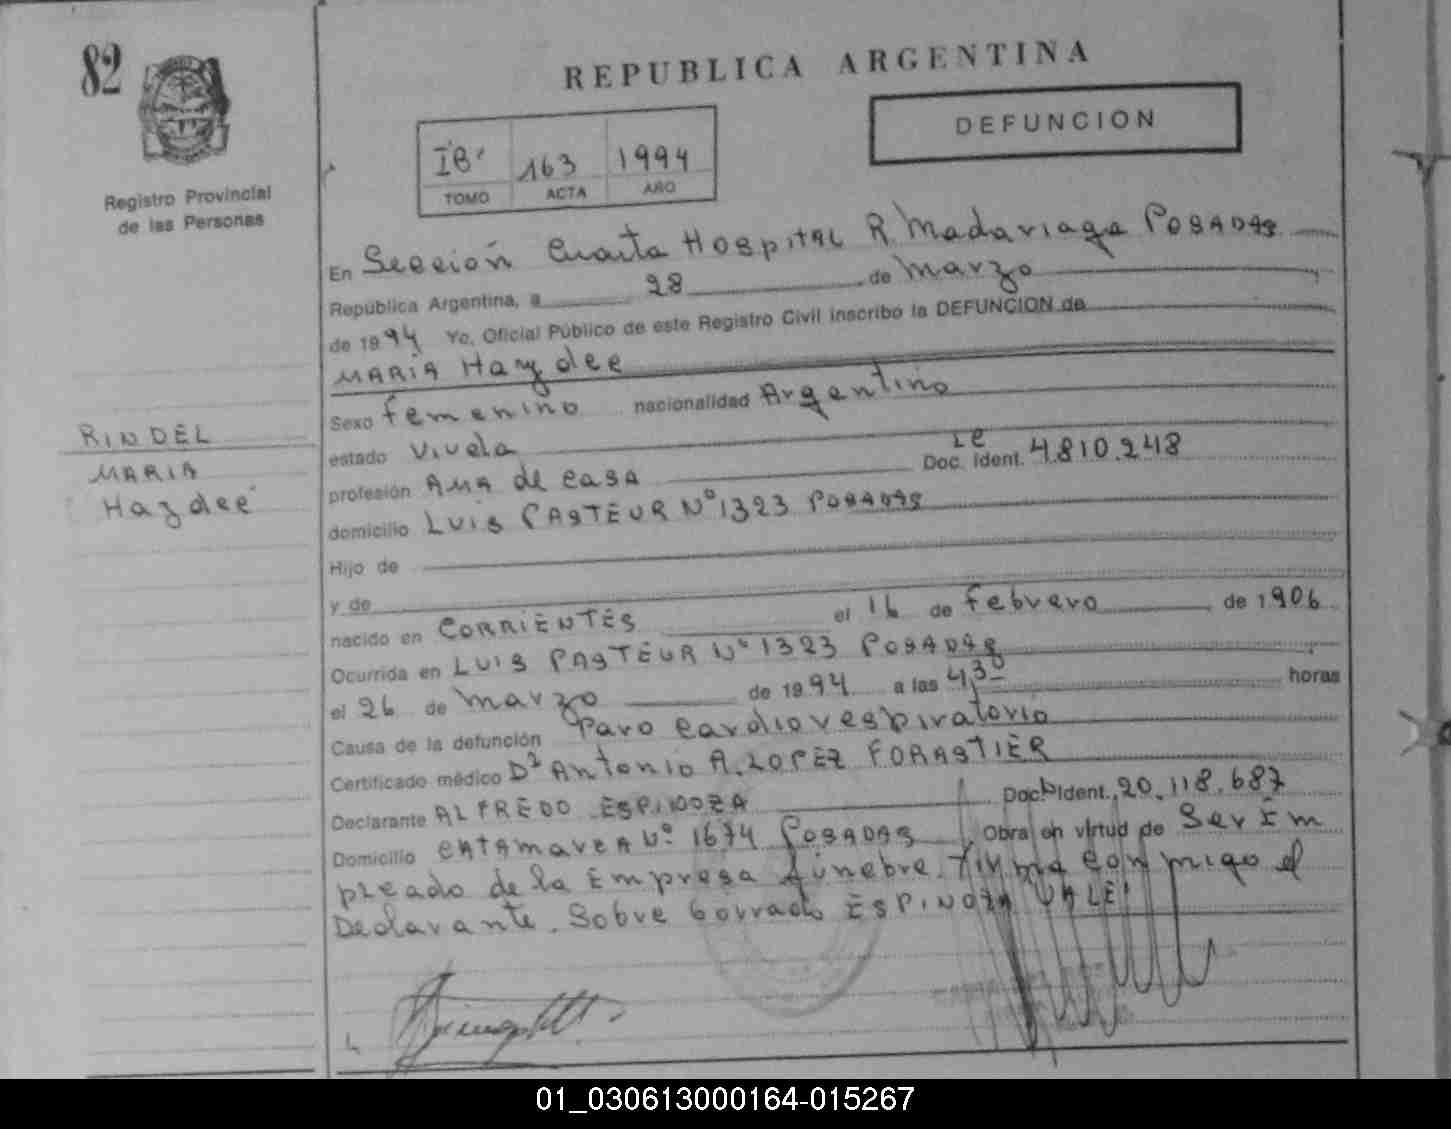 82
REPUBLICA ARGENTINA
DEFUNCION
IBˊ 163 1994
TOMO ACTA AÑO
Registro Provincial
de las Personas
En Sección Cuarta Hospital R. Madariaga POSADAS
República Argentina, a 28 de Marzo
de 1994 Yo, Oficial Público de este Registro Civil inscribo la DEFUNCION de
MARIA Haydee
Sexo femenino nacionalidad Argentino
estado Viuda
profesión AMA de CASA Doc. Ident. LC 4.810.248
domicilio LUIS PASTEUR Nº 1323 POSADAS
Hijo de
y de
nacido en CORRIENTES el 16 de febrero de 1906
Ocurrida en LUIS PASTEUR Nº 1323 POSADAS
el 26 de Marzo de 1994 a las 4,30 horas
Causa de la defunción Paro Cardiorespiratorio
Certificado médico Dr Antonio A. LOPEZ FORASTIER
Declarante ALFREDO ESPINOZA Doc. Ident. 20.118.687
Domicilio CATAMARCA Nº 1674 POSADAS Obra en virtud de Ser Em
pleado de la Empresa fúnebre. Firma conmigo el
Declarante. Sobre borrado ESPINOZA VALE
RINDEL
MARIA
Haydeé
01_030613000164-015267